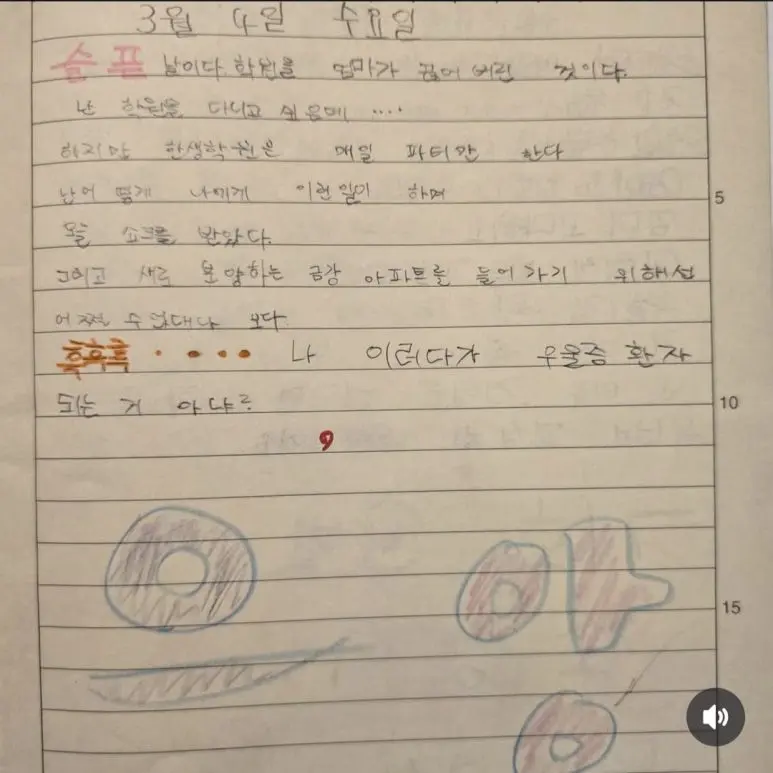 3월 4일 수요일
슬픈 날이다. 학원을 엄마가 끊어 버린 것이다.
난 학원을 다니고 싶은데 ....
하지만 한생학원은 매일 파티만 한다
난 어떻게 나에게 이런일이 하며
오늘 쇼크를 받았다.
그리고 새로 분양하는 금강 아파트를 들어가기 위해선
어쩔 수 없대나 보다.
흑흑흑 ..... 나 이러다가 우울증 환자
되는 거 아냐?
5
10
15
9
으 아